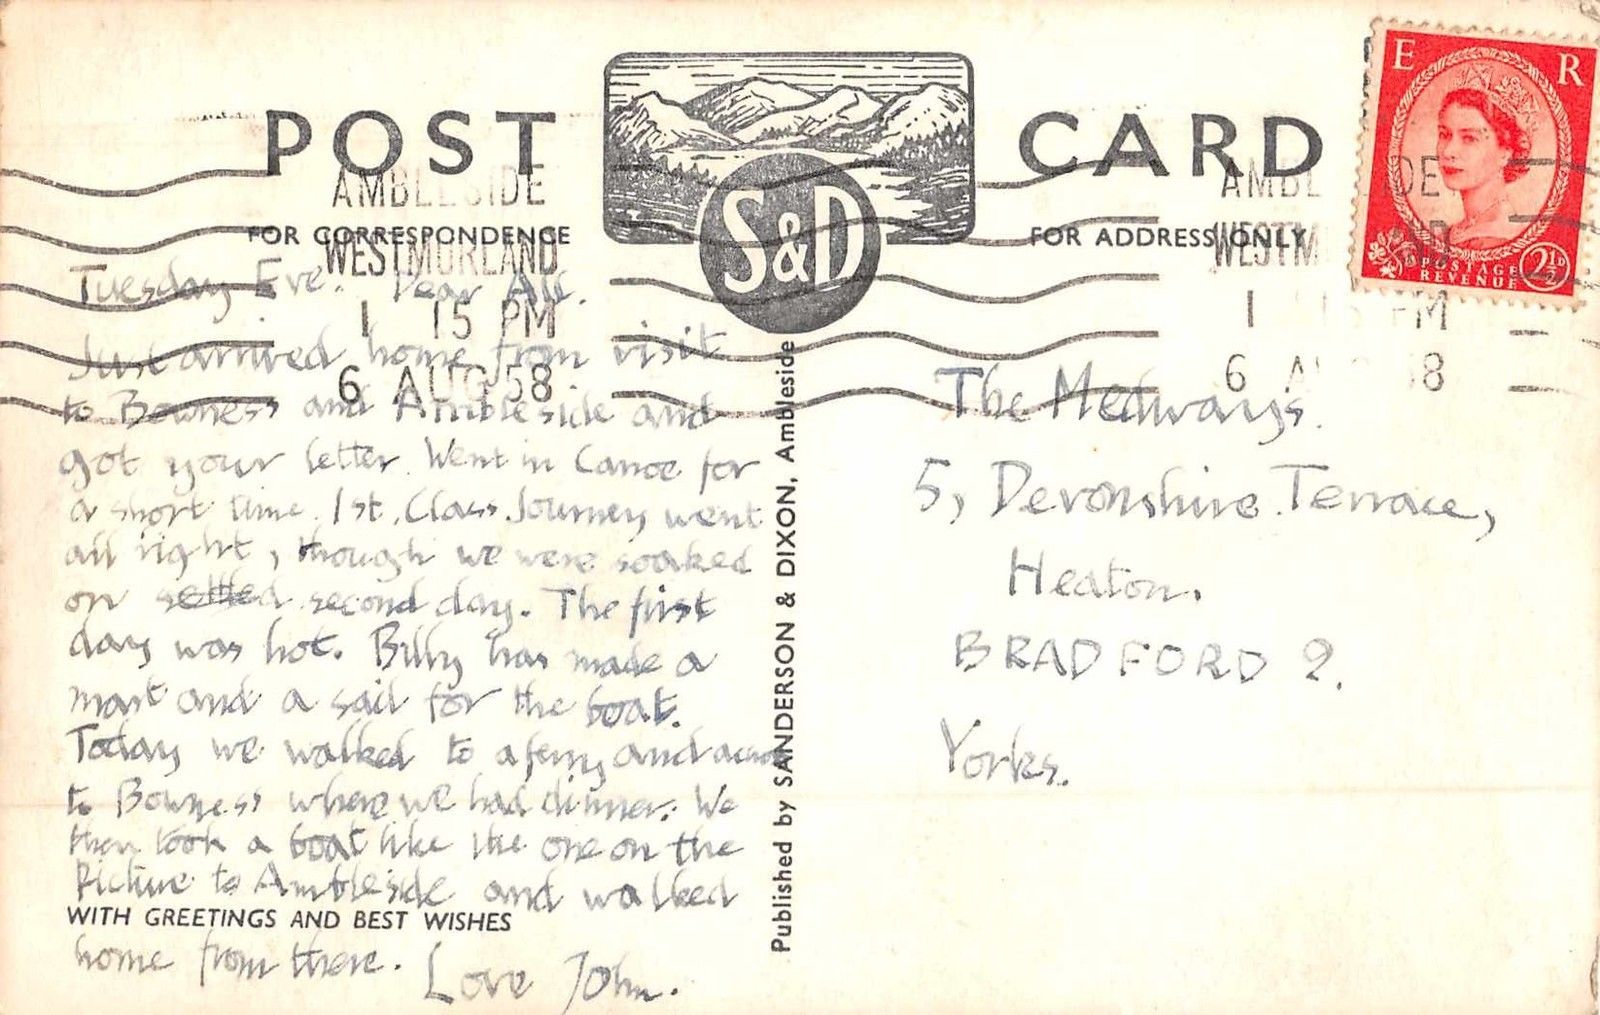 POST CARD
S&D
E R
POSTAGE
REVENUE
2½D
AMBLESIDE
WESTMORLAND
1 15 PM
6 AUG 58
FOR CORRESPONDENCE
FOR ADDRESS ONLY
Tuesday Eve. Dear All.
Just arrived home from visit
to Bowness and Ambleside and
got your letter. Went in Canoe for
a short time. 1st. Class Journey went
all right, though we were soaked
on second day. The first
day was hot. Billy has made a
mast and a sail for the boat.
Today we walked to a ferry and across
to Bowness where we had dinner. We
then took a boat like the one on the
Picture to Ambleside and walked
WITH GREETINGS AND BEST WISHES
home from there. Love John.
Published by SANDERSON & DIXON, Ambleside
AMBL IDE
WESTM
1 15 PM
6 A 8
The Medways.
5, Devonshire Terrace,
Heaton.
BRADFORD 2.
Yorks.